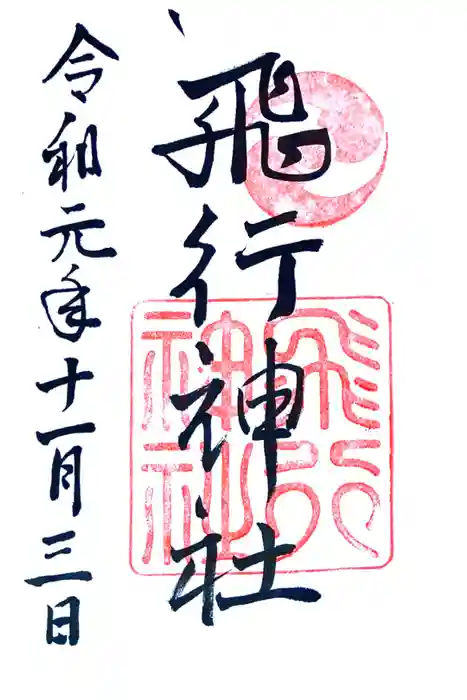 飛行神社
飛行
神社
令和元年十一月三日